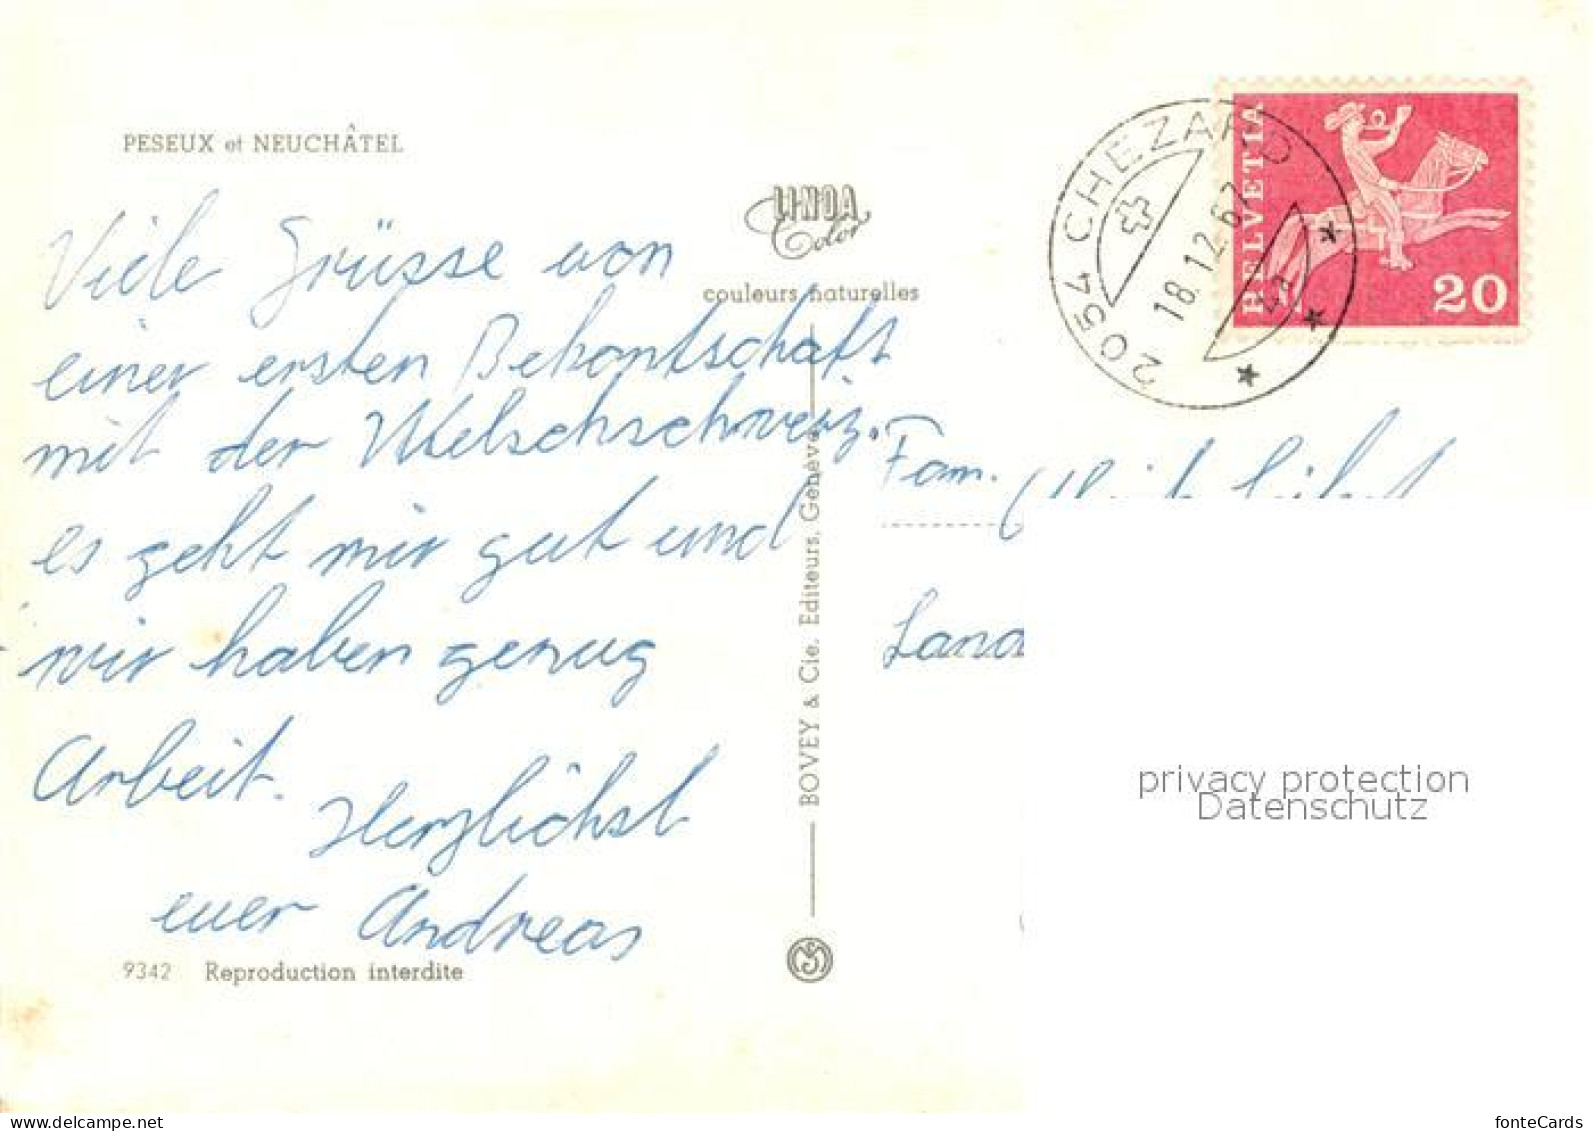 PESEUX et NEUCHÂTEL
LINDA
Color
couleurs naturelles
Viele Grüsse von
einer ersten Bekantschaft
mit der Welschschweiz.
es geht mir gut und
wir haben genug
Arbeit.
Herzlichst
euer Andreas
9342 Reproduction interdite
BOVEY & Cie. Editeurs, Genève
2054 CHEZARD
18.12.67
HELVETIA
20
Fam.
privacy protection
Datenschutz
www.delcampe.net
fonteCards